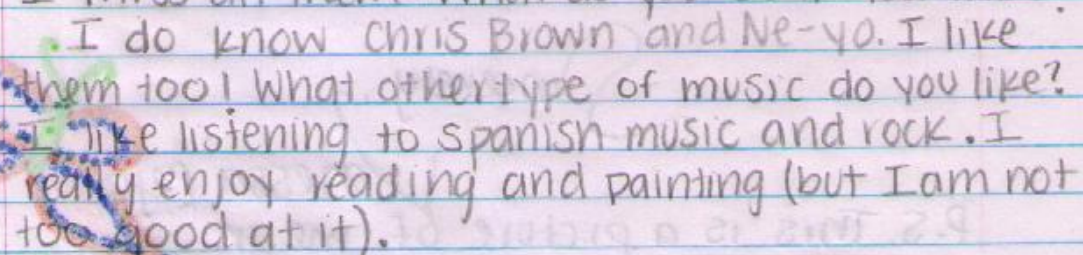 I do know Chris Brown and Ne-yo. I like
them too! What other type of music do you like?
I like listening to spanish music and rock. I
really enjoy reading and painting (but I am not
too good at it).
P.S. This is a picture of